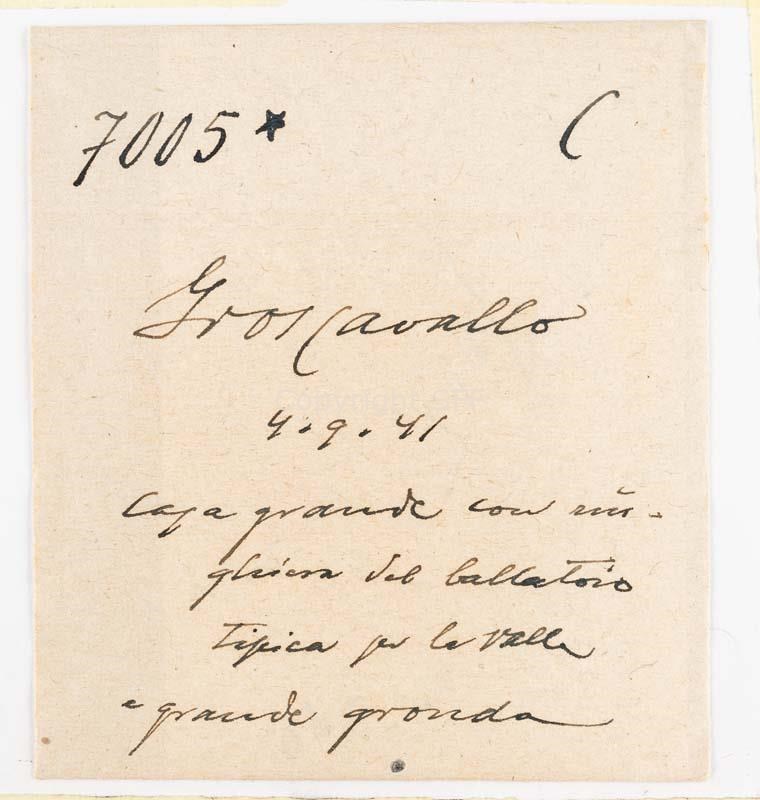 7005* C
Groscavallo
4.9.41
Casa grande con rin-
ghiera del ballatoio
tipica per la valle
e grande gronda